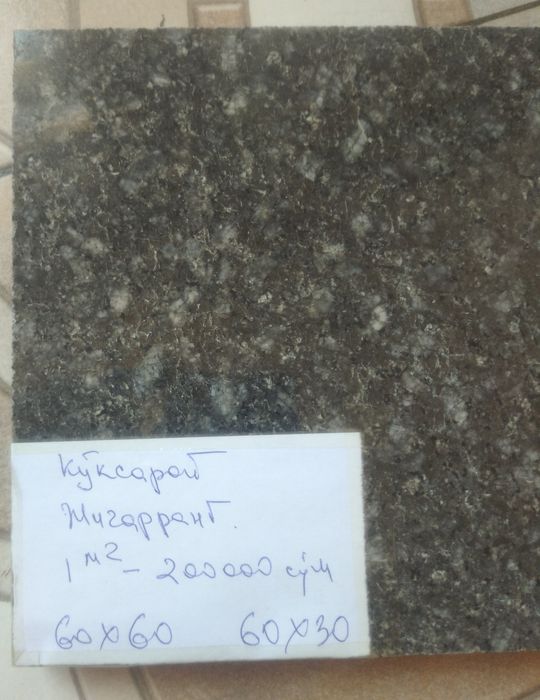 Кўксарой
Жигарранг.
1 м² - 200000 сўм
60х60 60х30